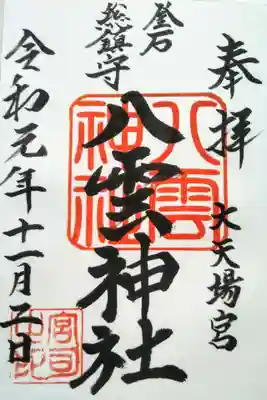 奉拝
大天場宮
釜石
総鎮守
八雲神社
八雲
神社
令和元年十一月二日
宮司